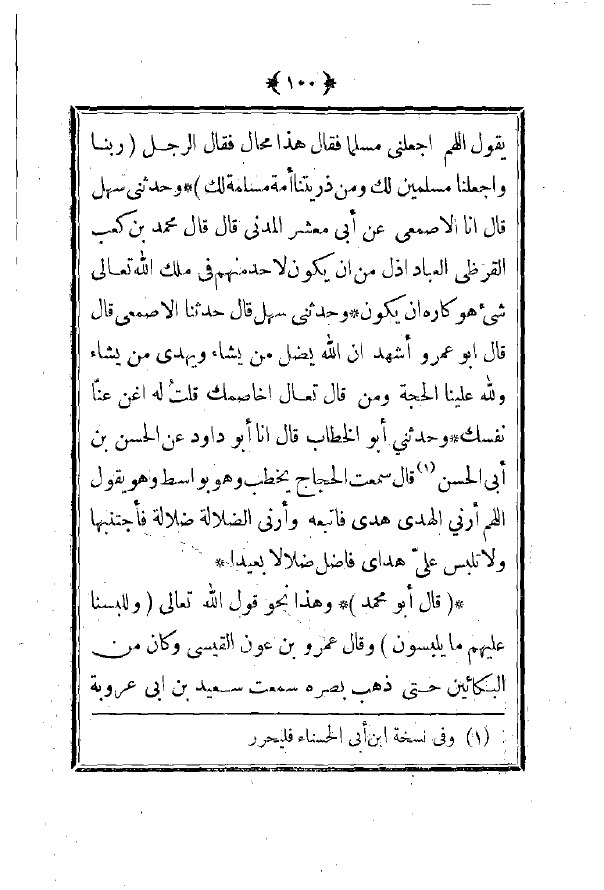 ﴿ ١٠٠ ﴾
يقول اللهم اجعلنى مسلما فقال هذا محال فقال الرجل ( ربنا
واجعلنا مسلمين لك ومن ذريتنا أمة مسلمة لك )*وحدثنى سهل
قال انا الاصمعى عن أبى معشر المدنى قال قال محمد بن كعب
القرظى العباد اذل من ان يكون لاحد منهم فى ملك الله تعالى
شئ هو كاره ان يكون*وحدثنى سهل قال حدثنا الاصمعى قال
قال ابو عمرو أشهد ان الله يضل من يشاء ويهدى من يشاء
ولله علينا الحجة ومن قال تعال اخاصمك قلتُ له اغن عنّا
نفسك*وحدثني أبو الخطاب قال انا أبو داود عن الحسن بن
أبى الحسن (١) قال سمعت الحجاج يخطب وهو بواسط وهو يقول
اللهم أرني الهدى هدى فاتبعه وأرنى الضلالة ضلالة فأجتنبها
ولا تلبس علىّ هداى فاضل ضلالا بعيدا*
*( قال أبو محمد )* وهذا نحو قول الله تعالى ( وللبسنا
عليهم ما يلبسون ) وقال عمرو بن عون القيسى وكان من
البكائين حتى ذهب بصره سمعت سعيد بن ابى عروبة
(١) وفى نسخة ابن أبى الحسناء فليحرر